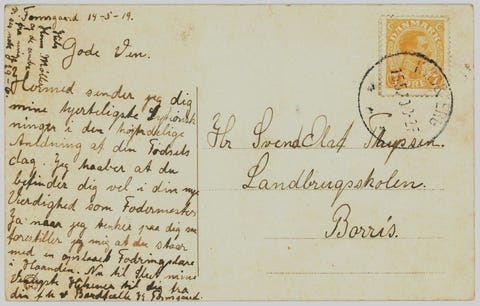 Tomsgaard 14-5-19.
Gode Ven.
Hermed sender jeg dig
mine hjerteligste Lykønsk-
ninger i den højtidelige
Anledning af din Fødsels
dag. Jeg haaber at du
befinder dig vel i din nye
Værdighed som Fodermester
Ja naar jeg tænker paa dig saa
forestiller jeg mig at du staar
med en opslaaet Fodringslære
i Haanden. Nu til Slut mine
Hilsener til dig fra
din
DANMARK
Hr Svend Olaf Thyssen.
Landbrugsskolen.
Borris.